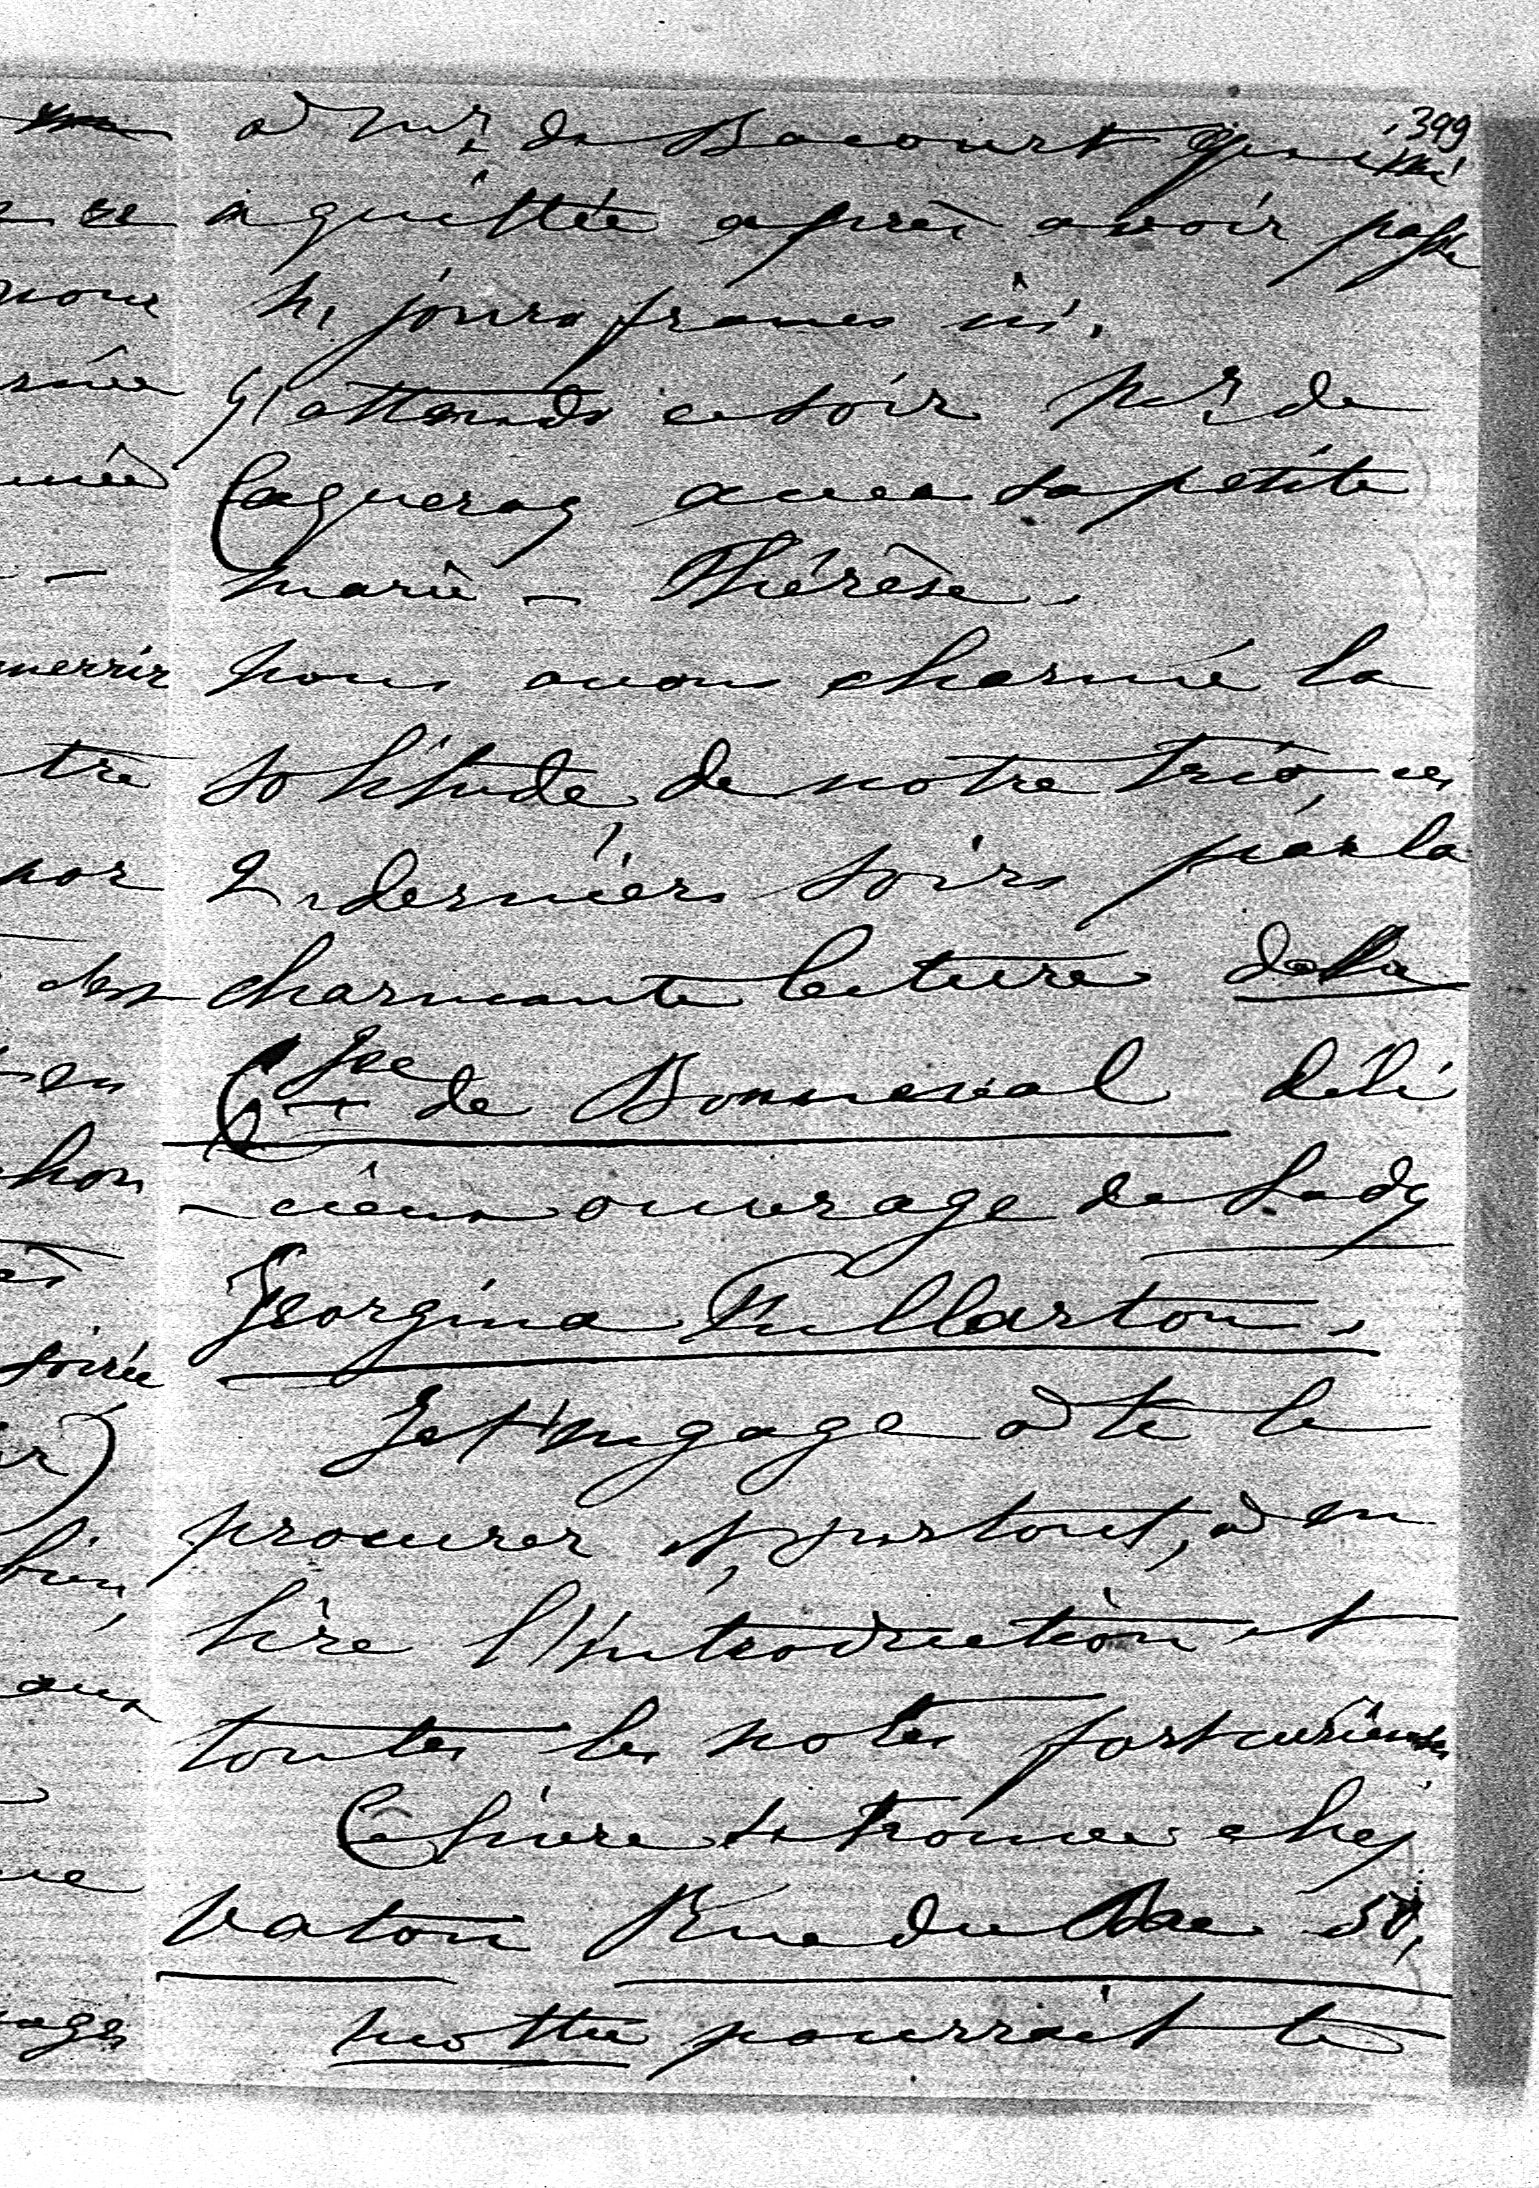 399
à Mr de Bacourt qui m'
a quittée après avoir passé
h, jours francs ici.
J'attends ce soir Mr de
Caqueray avec sa petite
marie - Thérèse.
nous avons charmé la
solitude, de notre trio, ces
2 derniers soirs par la
charmante lecture de la
Ctsse de Bonneval déli
-cieux ouvrage de Lady
Georgina Fullarton.
Je t'engage à te le
procurer et, surtout, à en
lire l'introduction et
toutes les notes fort curieuses
Ce livre se trouve chez
Vaton Rue du Bac 50,
mottu pourrait te